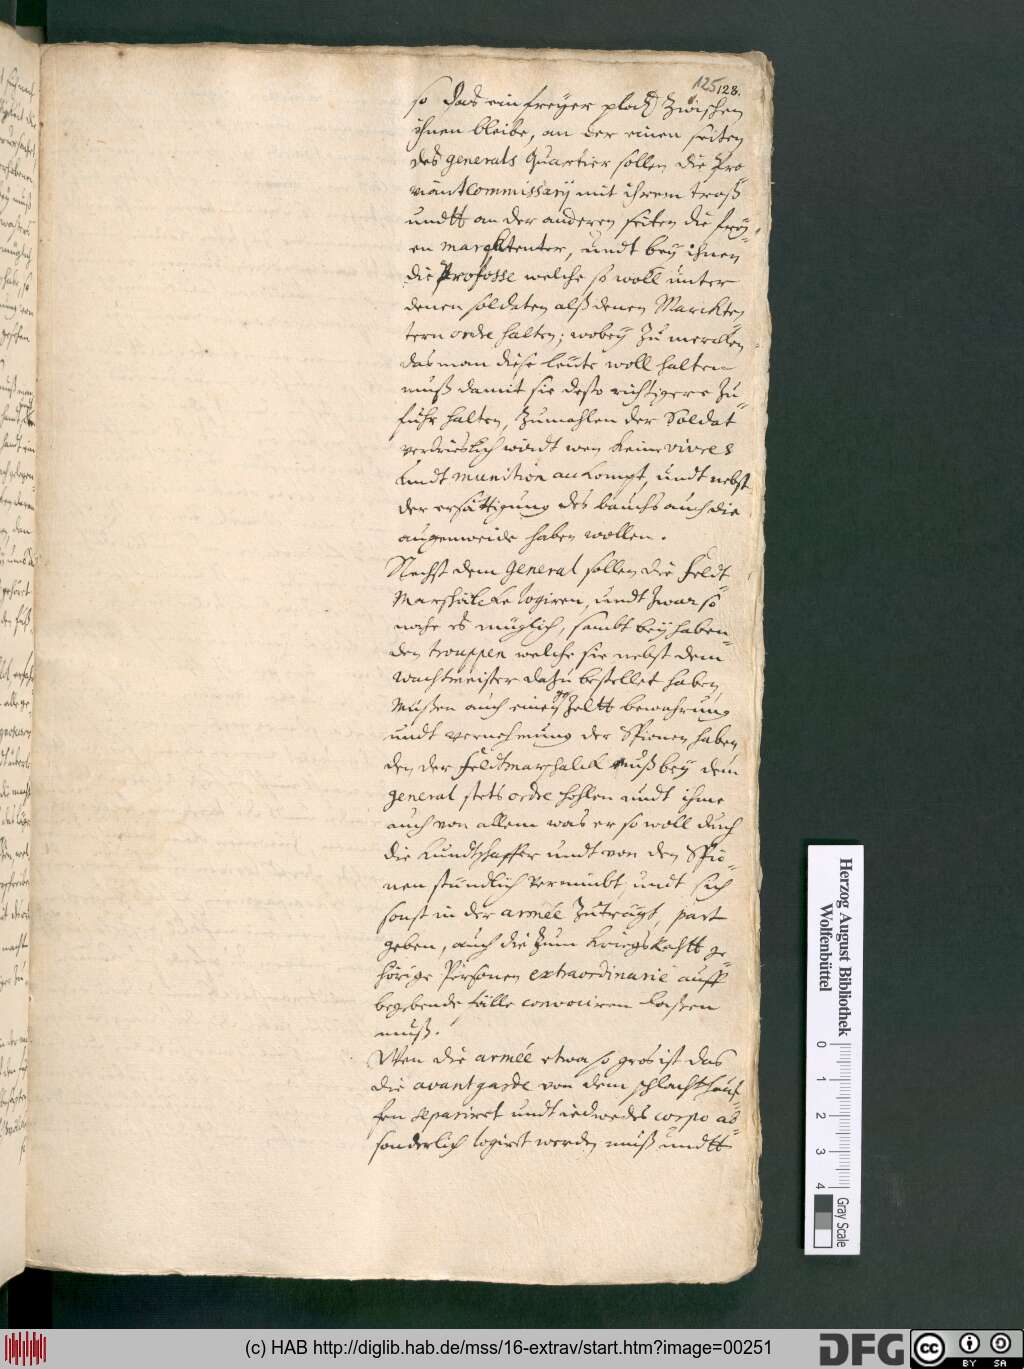 125 128.
so das ein freyer platz zwischen
ihnen bleibe, an der einen seiten
des generals Quartier sollen die Pro=
viantcommissarij mit ihrem troß
undt an der anderen seiten die frey=
en marcktenter, undt bey ihnen
die Profosse welche so woll unter
denen soldaten alß denen Marckten
tern ordre halten; wobey zu mercken
das man diese leute woll halten
muß damit sie desto richtigere Zu=
fuhr halten, Zumahlen der Soldat
verdrieslich wirdt wen keine vivres
undt munition ankompt, undt nebst
der ersättigung des bauchs auch die
augenweide haben wollen.
Nechst dem General sollen die Feldt=
Marschälcke logiren, undt zwar so
nahe es müglich, sambt bey haben=
den trouppen welche sie nebst dem
wachtmeister dazu bestellet haben
Müßen auch einen Zeltt bewahrung
undt vernehmung der Spionen haben
den der Feldtmarschalck muß bey dem
general stets ordre hohlen undt ihme
auch von allem was er so woll durch
die kundtschaffter undt von den Spio=
nen stündlich vernimbt, undt sich
sonst in der armée zuträgt, part
geben, auch die zum kriegs Rahtt ge=
hörige Persohnen extraordinarie auff
begebende fälle convociren laßen
muß.
Wen die armée etwa so gros ist das
die avantgarde von dem schlachthauf=
fen separiret undt iedwedes corpo ab=
sonderlich logirt werden muß undtt
Herzog August Bibliothek
Wolfenbüttel
0 1 2 3 4
Gray Scale
(c) HAB http://diglib.hab.de/mss/16-extrav/start.htm?image=00251
DFG
cc
BY SA